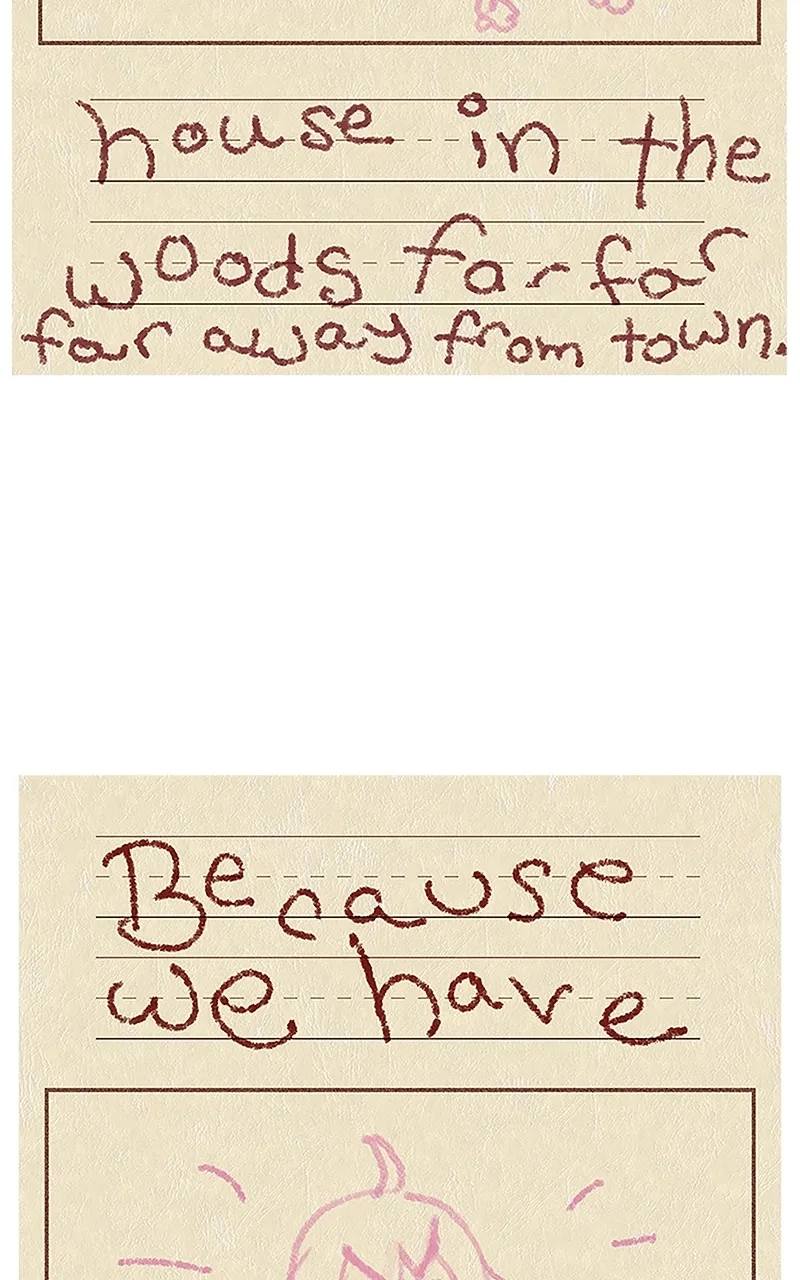 house in the
woods far far
far away from town.
Because
we have